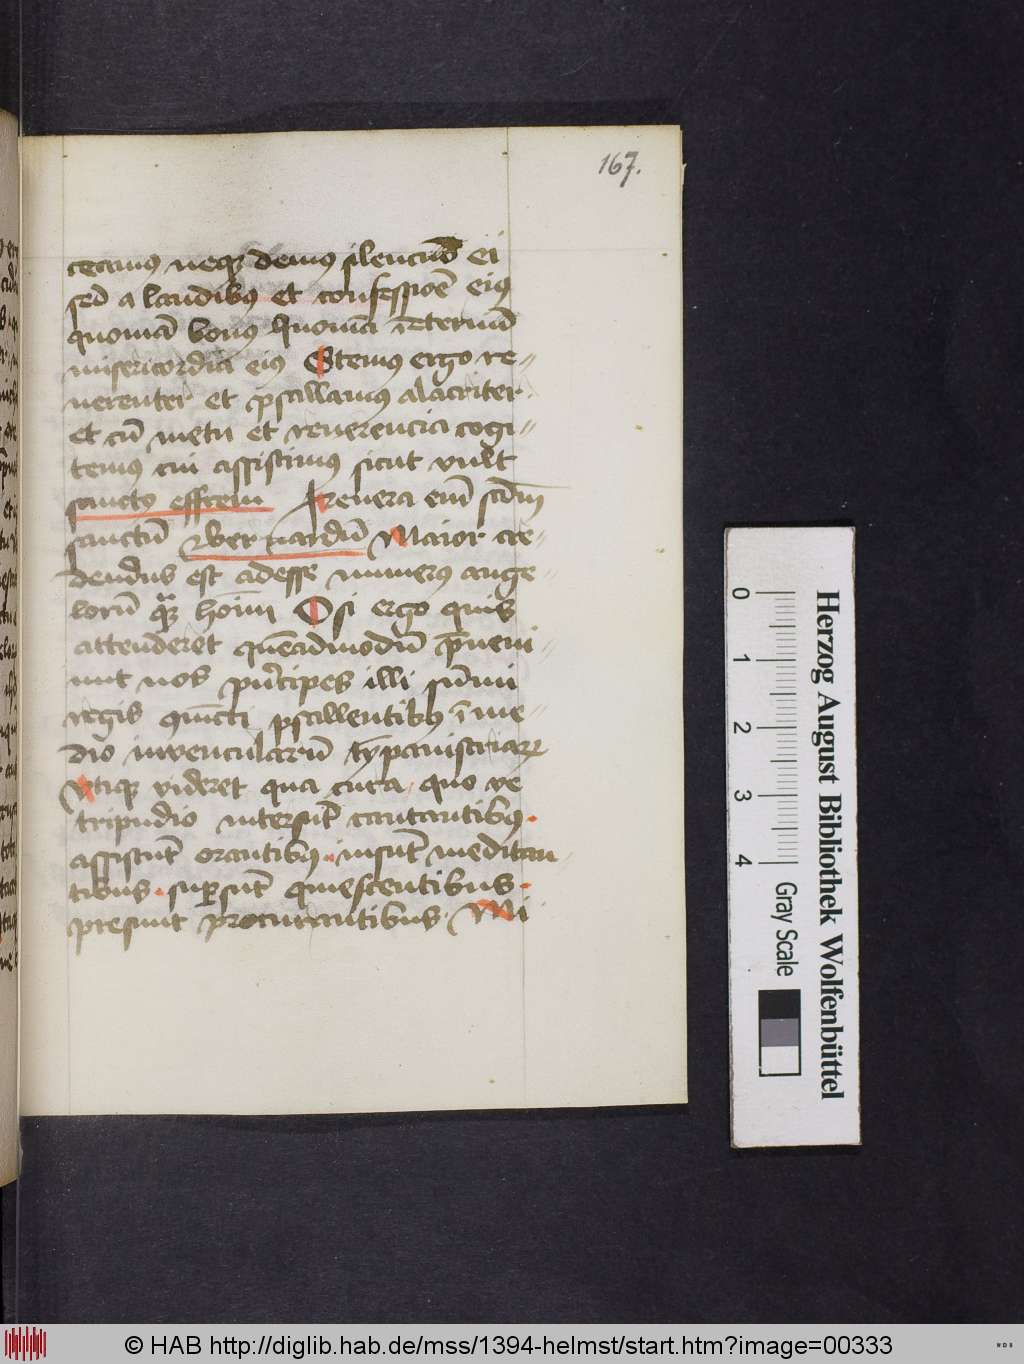 167.
ceamus neqȝ demus silenciū ei
sed a laudibꝯ et confessiōe eiꝯ
quoniā bonus Quoniā ī eternū
misericordia eiꝯ Stemus ergo re-
uerenter et psallamus alacriter
et cū metu et reuerencia cogi-
temus cui assistimꝯ sicut vult
sanctꝯ effrem Reuera em̄ scdm̄
sanctū Bernardū Maior cre-
dendus est adesse numerꝯ ange-
lorū quaȝ hoīm O si ergo quis
attenderet quēadmodū p̄ueni-
unt nos prīcipes illi sūmi
regis cūcti psallentibꝯ ī me-
dio iuvencularū tÿpanistriaꝝ
vtiqȝ videret qua cura quo ve
tripudio intersūt cantantibꝯ.
assistūt orantibꝯ. insūt meditan-
tibus. supersūt quiescentibus.
presunt procurantibus. Mi
Herzog August Bibliothek Wolfenbüttel
0 1 2 3 4 Gray Scale
© HAB http://diglib.hab.de/mss/1394-helmst/start.htm?image=00333